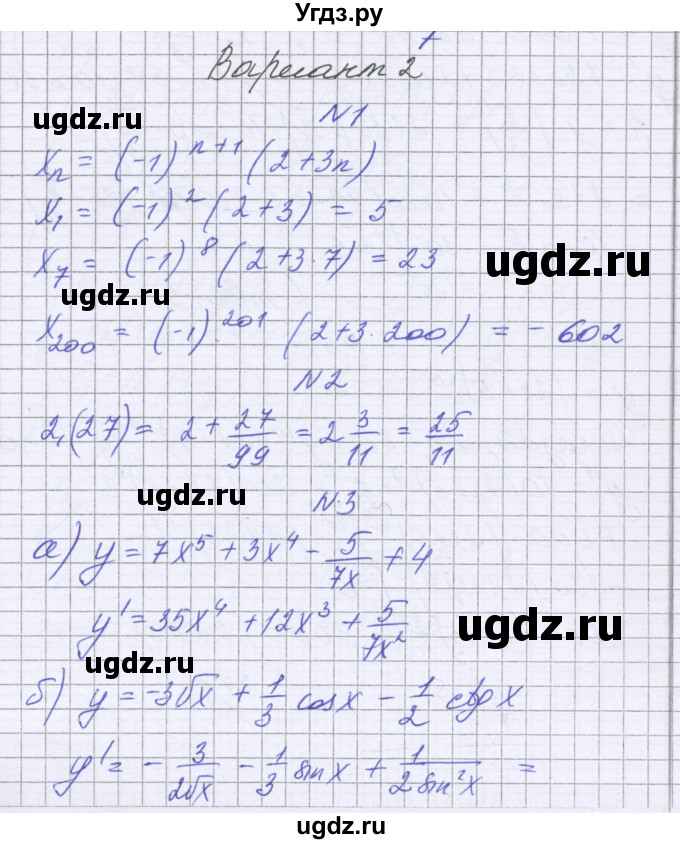 Угдз.ру
Вариант 2
ugdz.ru
N1
xₙ = (-1)ⁿ⁺¹ (2+3n)
x₁ = (-1)² (2+3) = 5
ugdz.ru
x₇ = (-1)⁸ (2+3·7) = 23
ugdz.ru
x₂₀₀ = (-1)²⁰¹ (2+3·200) = - 602
N2
2,(27) = 2 + 27/99 = 2 3/11 = 25/11
ugdz.ru
N3
а) y = 7x⁵ + 3x⁴ - 5/7x + 4
y' = 35x⁴ + 12x³ + 5/7x²
ugdz.ru
ugdz.ru
б) y = -3√x + 1/3 cos x - 1/2 ctg x
y' = - 3/2√x - 1/3 sin x + 1/2 sin²x =
ugdz.ru